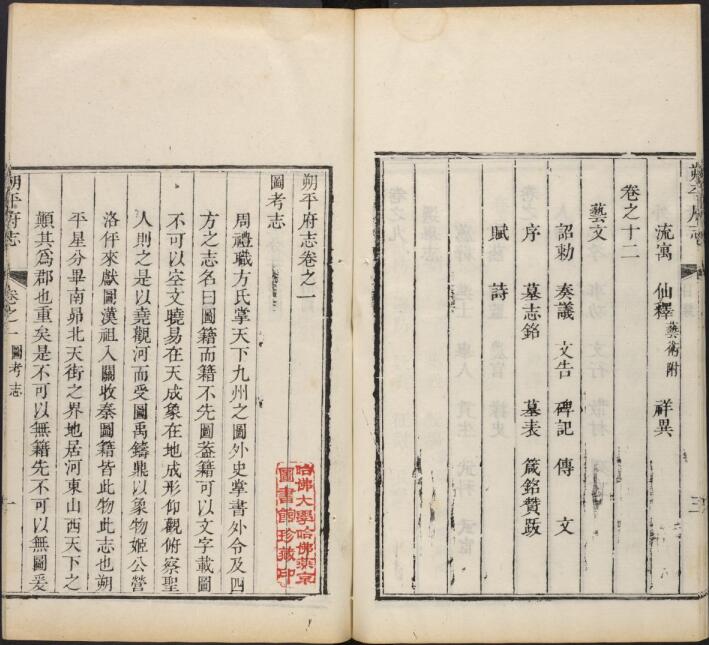 朔平府志
三
流寓 仙釋藝術附 祥異
卷之十二
藝文
詔勅 奏議 文告 碑記 傳 文
序 墓志銘 墓表 箴銘贊跋
賦 詩
朔平府志卷之一
圖考志
周禮職方氏掌天下九州之圖外史掌書外令及四
方之志名曰圖籍而籍不先圖葢籍可以文字載圖
不可以空文曉易在天成象在地成形仰觀俯察聖
人則之是以堯觀河而受圖禹鑄鼎以象物姬公營
洛伻來獻圖漢祖入關收秦圖籍皆此物此志也朔
平星分畢南昴北天街之界地居河東山西天下之
顛其爲郡也重矣是不可以無籍先不可以無圖爰
朔平府志 卷之一 圖考志 一
哈佛大學哈佛燕京
圖書館珍藏印